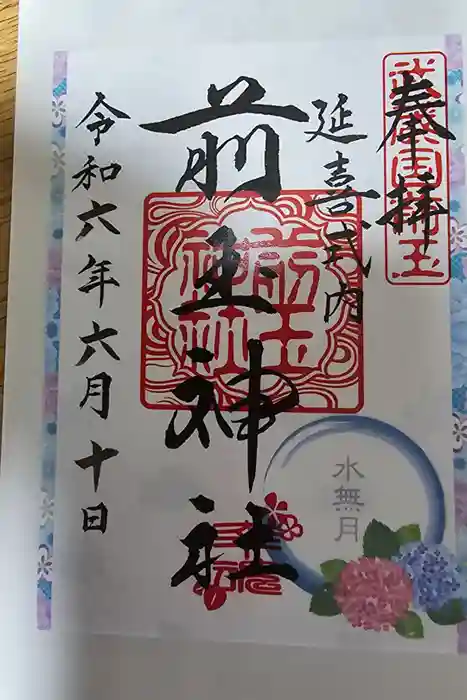 奉拝
武蔵国埼玉
延喜式内
前玉神社
前玉神社
令和六年六月十日
水無月